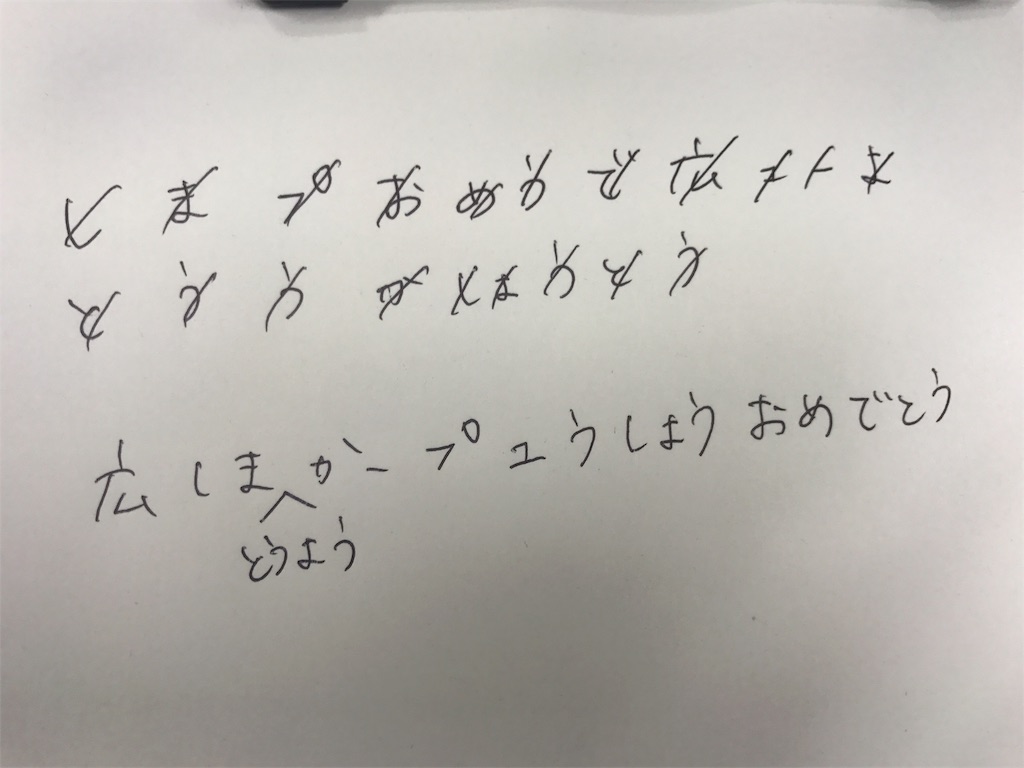 しまプおめうで広ユーよ
とううかしようとう
広しまかープユうしようおめでとう
とうよう